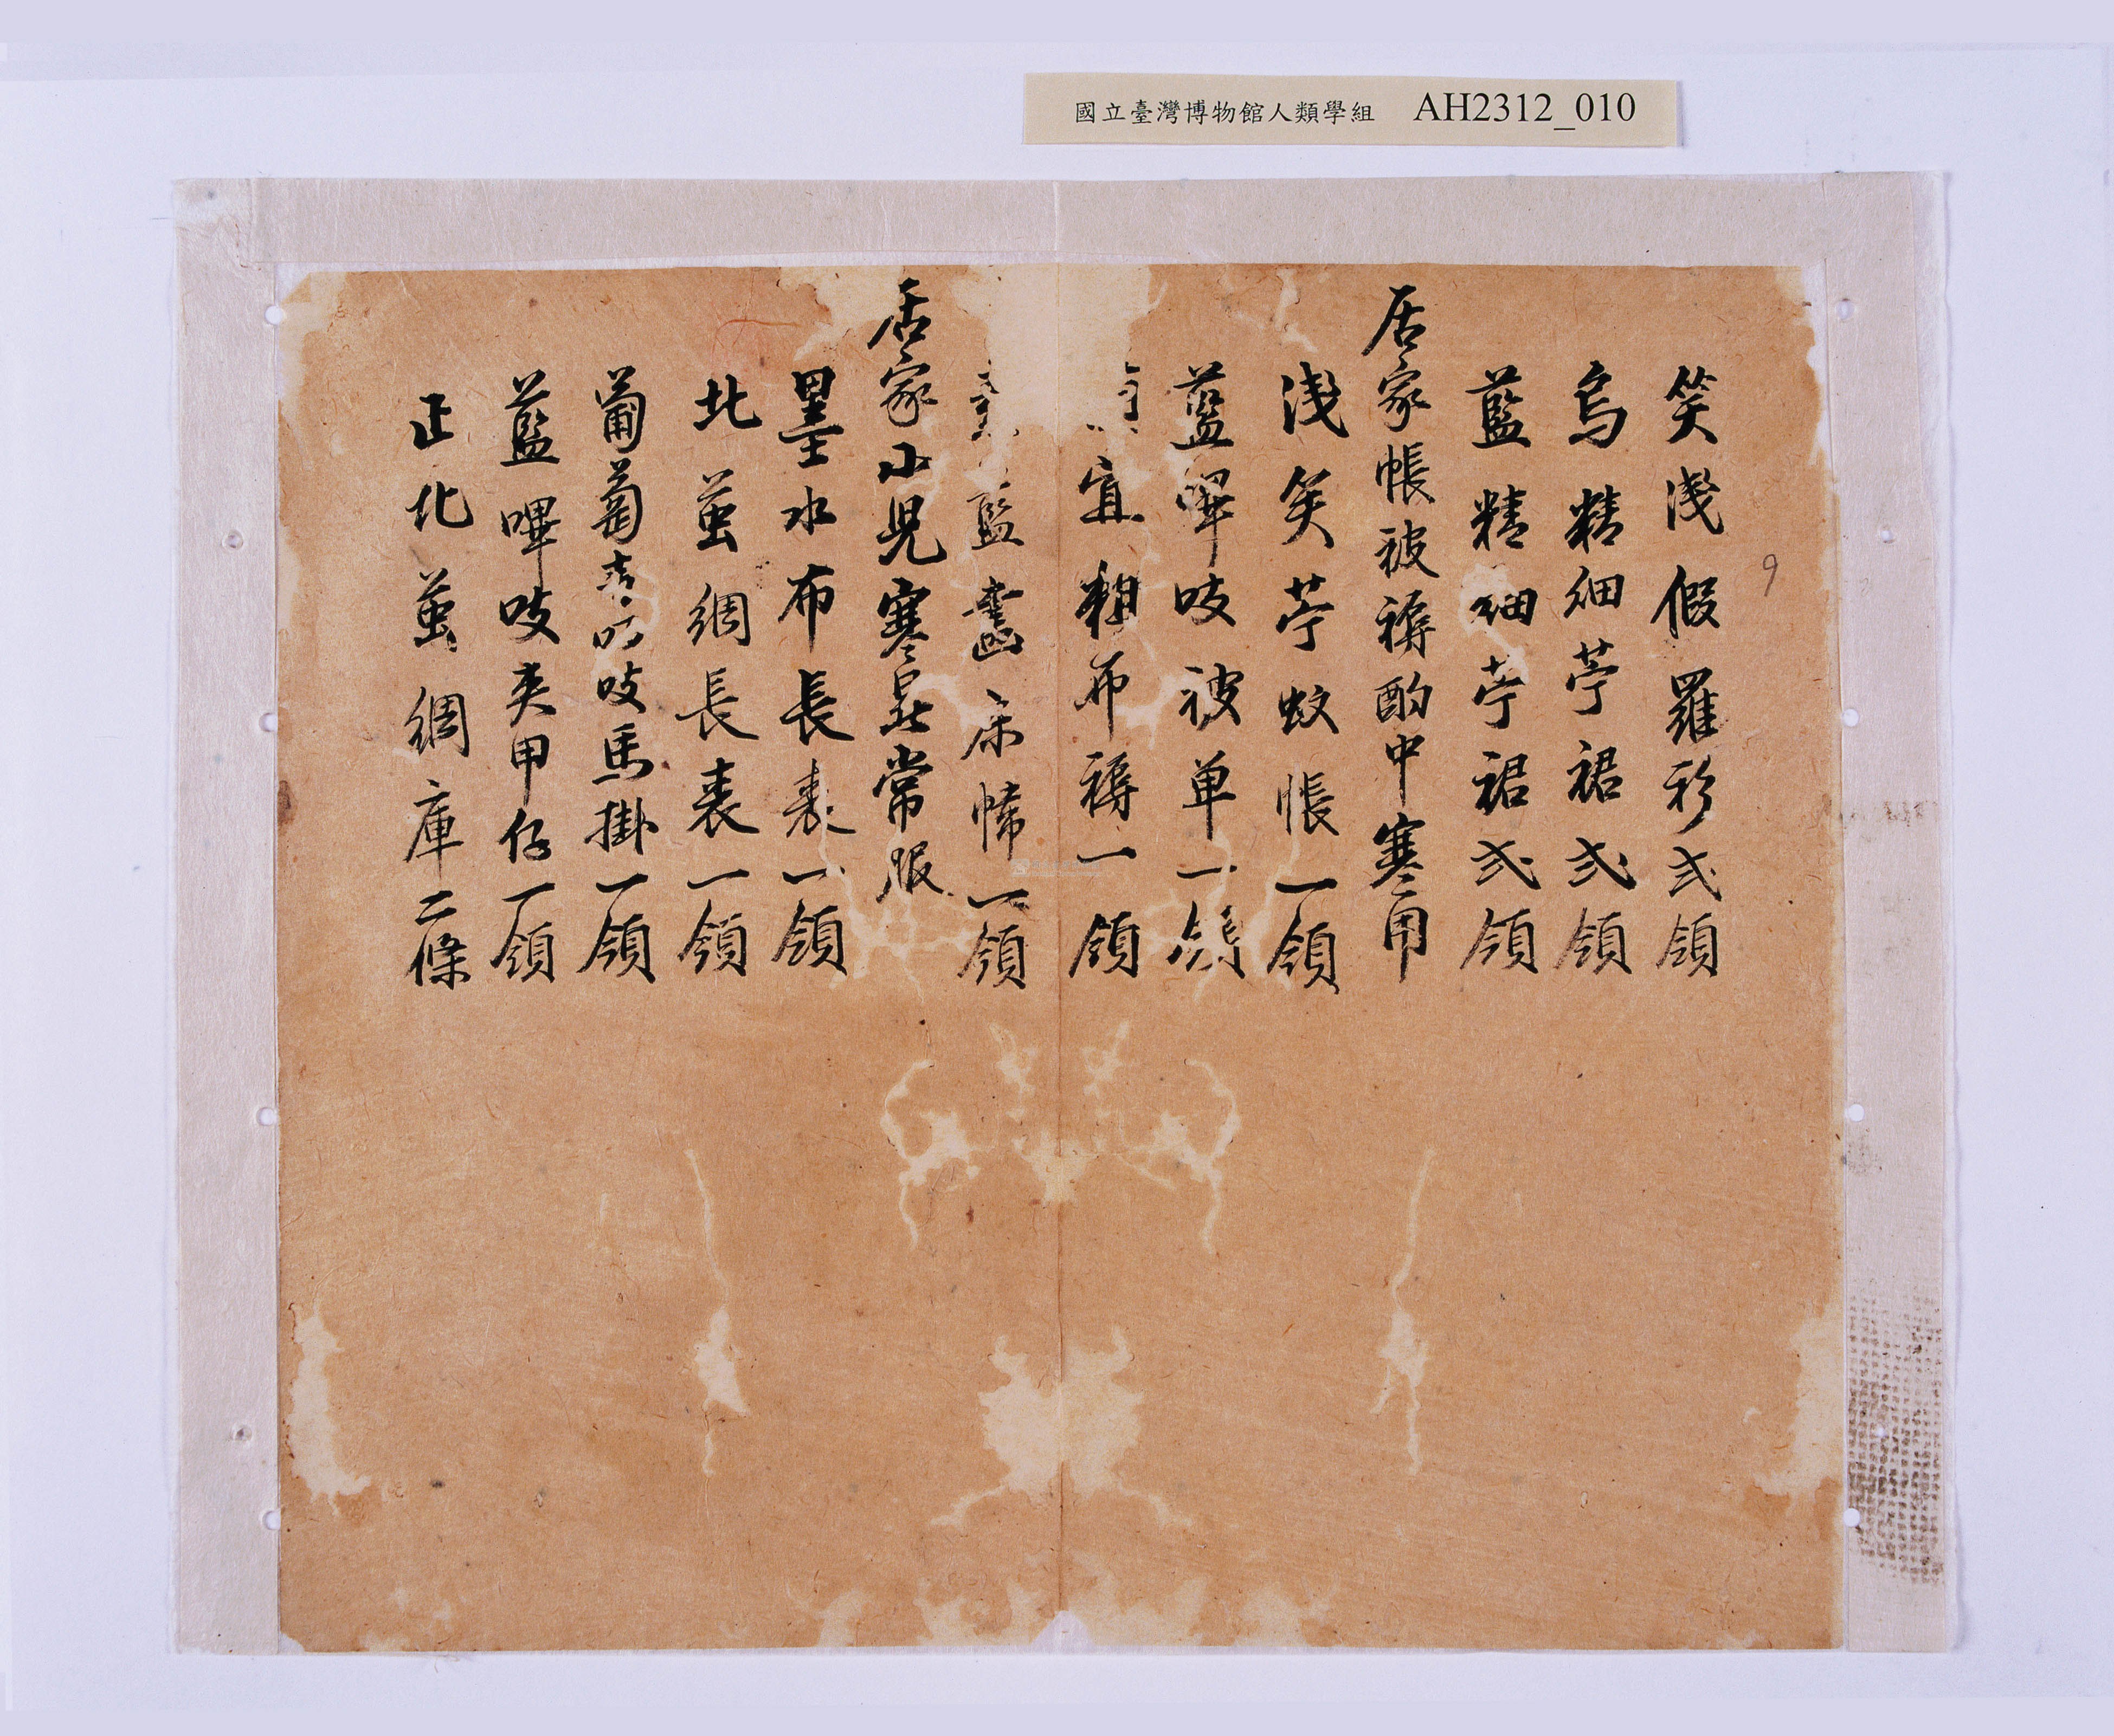 國立臺灣博物館人類學組 AH2312_010
9
笑淺假羅衫弍領
烏精細苧裙弍領
藍精細苧裙弍領
居家帳被褥酌中寒用
淺笑苧蚊帳一領
藍嗶吱被单一領
宜粗布褥一領
藍 床帏一領
居家小兒寒暑常服
墨水布長表一領
北茧綢長表一領
葡萄青嗶吱馬掛一領
藍嗶吱夾甲仔一領
正北茧綢庫二條